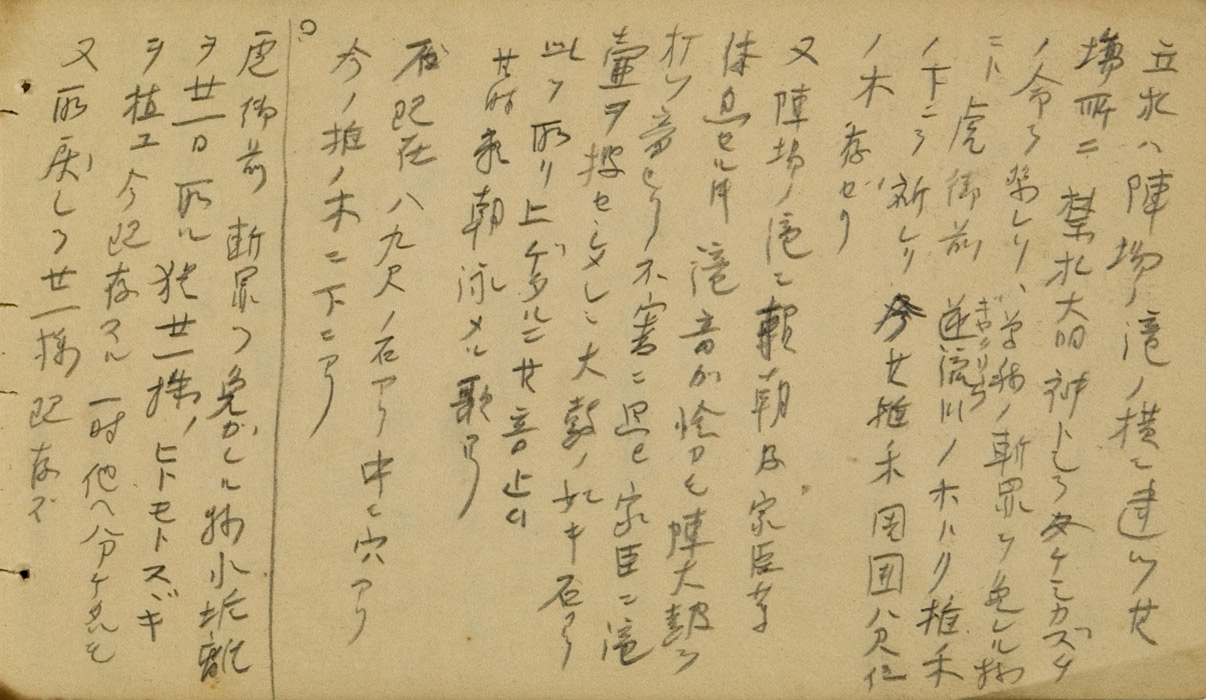 立札ハ陣場ノ滝ノ横ニ建ツ其
場所ニ禁札大明神トシテ
ノ今ラ
ニト虎御前 斬罪ヲ免レル
ノ下ニテ祈レリ 逆流川ノホトリ椎木
ノ木存セリ 今其椎木周囲八尺位
又陣場ノ滝ニ頼朝及家臣等
休息セル時滝音ガ恰カモ陣大鼓ヲ
打ツ音セリ不審ニ思ヒ家臣ニ滝
壷ヲ捜セシメシニ大鼓ノ如キ石アリ
此ヲ取リ上ゲタルニ其音止ム
其時頼朝詠メル歌アリ
石現在八九尺ノ石アリ中ニ穴アリ
今ノ椎ノ木ニ下ニアリ
虎御前 斬罪ヲ免カレル為小垢離
ヲ廿一日取ル 後廿一株ノヒトモトスギ
ヲ植エ今現存スル 一時他ヘ分ケタルモ
又取戻シテ廿一株現存ス